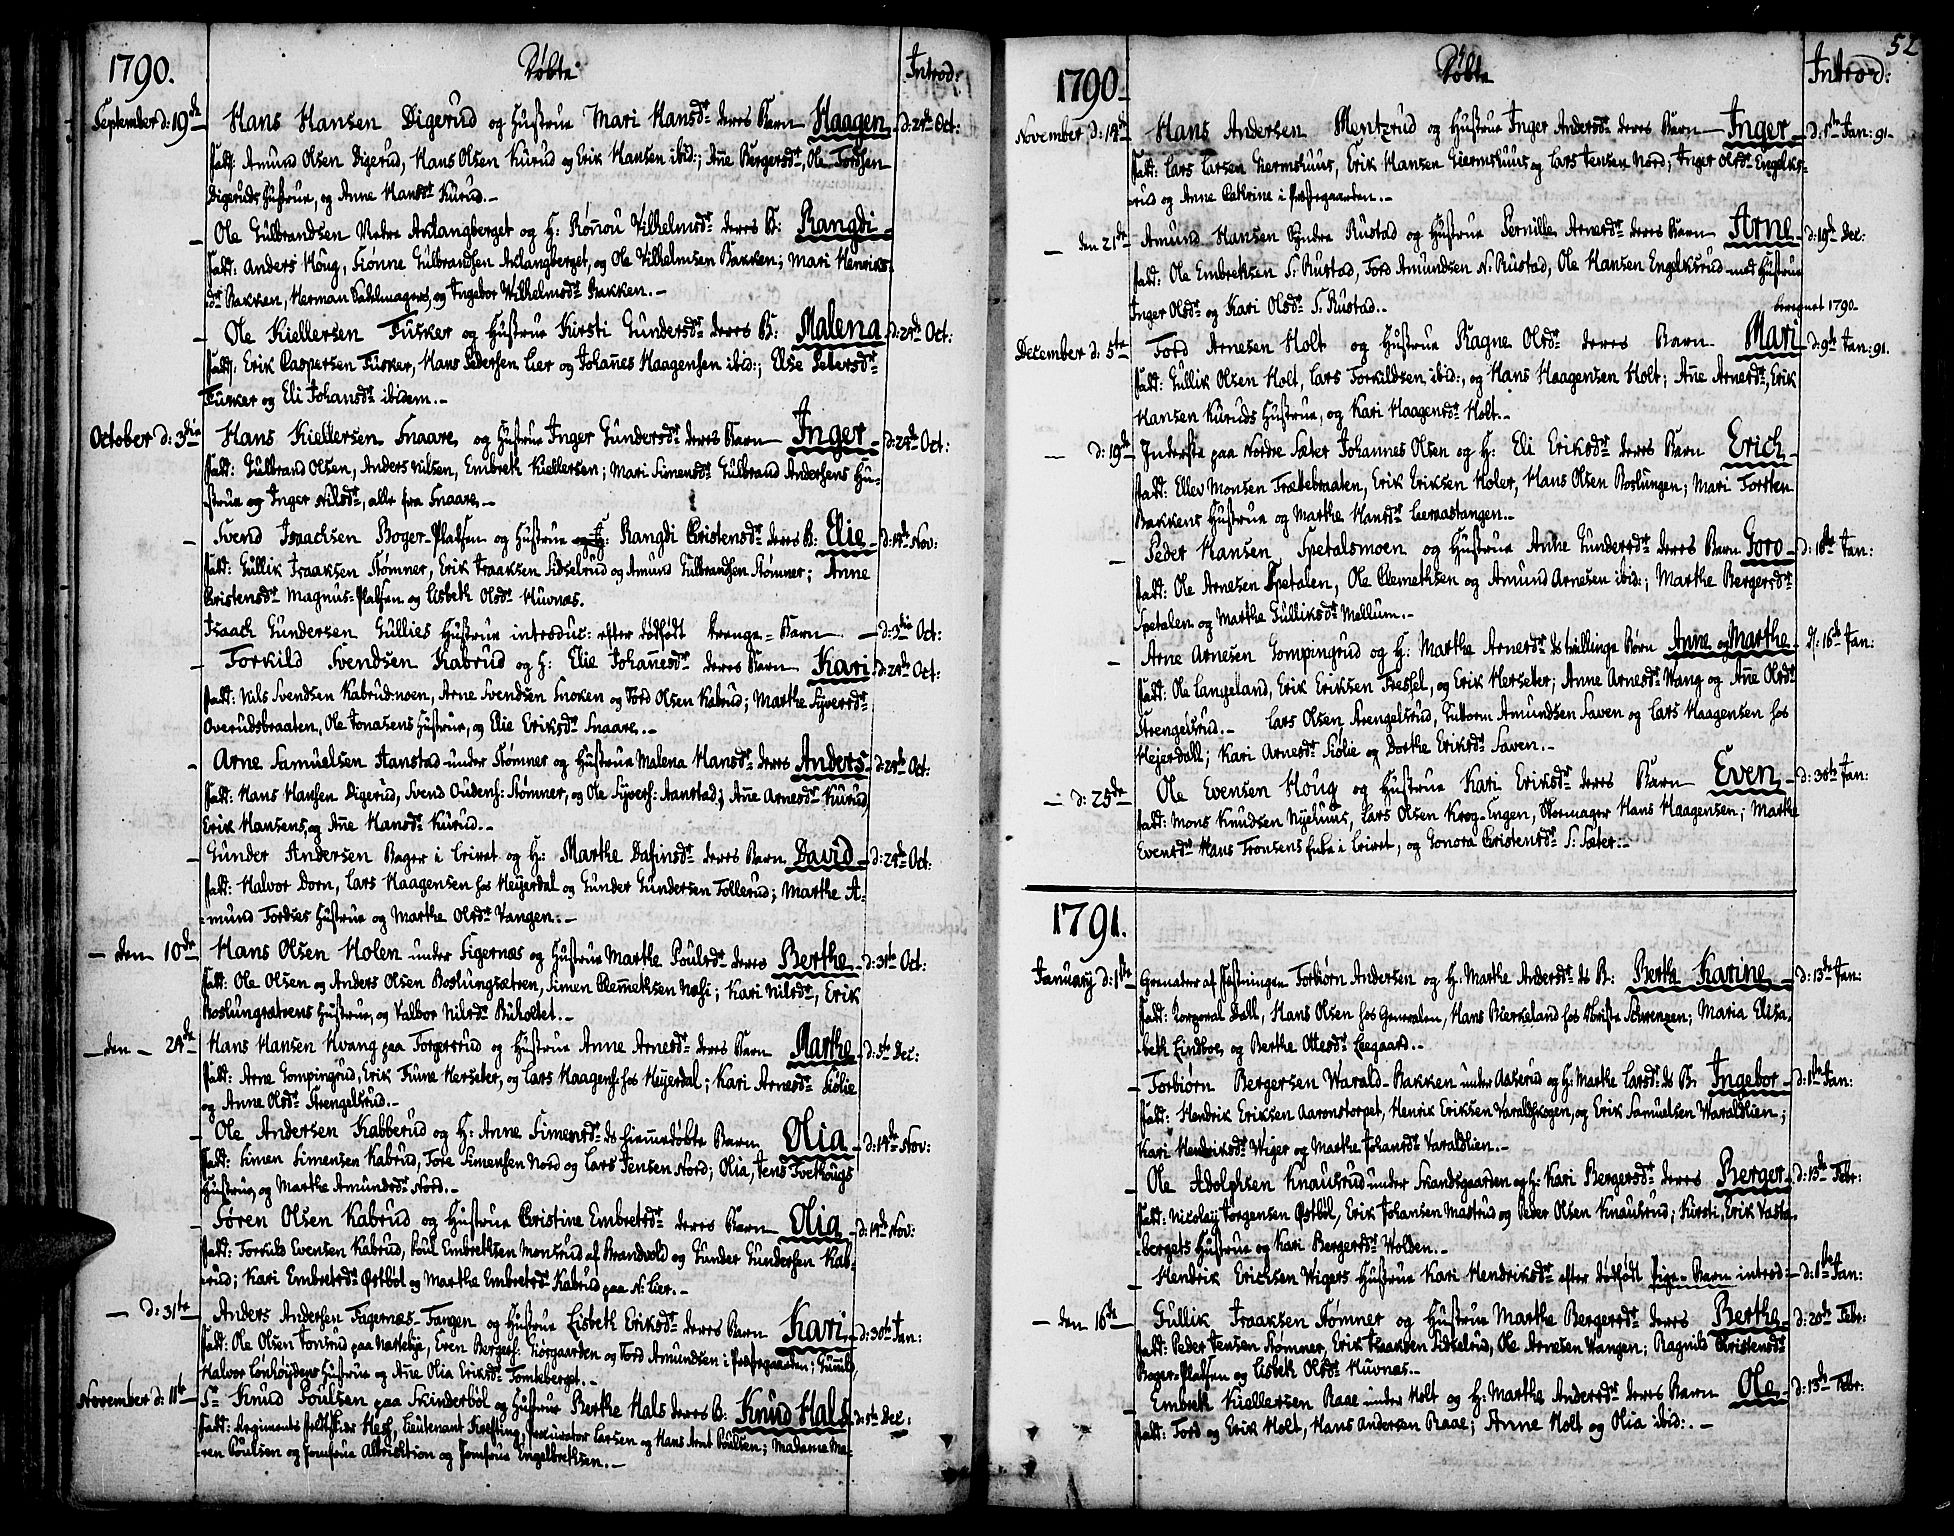 1790.
Døbte
Introd:
September d: 19de Hans Hansen Digerud og Hustrue Mari Hansdr. deres Barn Haagen d: 24de Oct:
Fadd: Amund Olsen Digerud, Hans Olsen Kurud og Erik Hansen ibid:; Añe Bergersdr., Ole Fordsen
Digeruds Hustrue, og Anne Hansdr. Kurud. –
– Ole Gulbrandsen Nedre Aklangberget og H: Rønnou Vilhelmsdr. deres B: Rangdi –
Fadd: Anders Houg, Siønne Gulbrandsen Aklangberget, og Ole Vilhelmsen Bakken; Mari Henriks-
dr. Bakken, Herman Sadelmagers, og Ingebor Wilhelmsdr. Bakken. –
– Ole Kiellersen Fusker og Hustrue Kirsti Gundersdr. deres B: Malena d: 24de Oct:
Fadd: Erik Caspersen Fusker, Hans Pedersen Lier og Johañes Haagensen ibid:; Else Petersdr.
Fusker og Eli Johansdr. ibidem. –
October d: 3die Hans Kiellersen Snaare, og Hustrue Inger Gundersdr. deres Barn – Inger – d: 24de Oct:
Fadd: Gulbrand Olsen, Anders Nilsen, Embret Kiellersen; Mari Simensdr. Gulbrand Andersens Hu-
strue og Inger Nilsdr., alle fra Snaare. –
– Svend Isaachsen Boger-Pladsen og Hustrue Rangdi Christensdr. deres B: Elie – d: 14de Nov:
Fadd: Gullik Isaaksen Stømner, Erik Isaaksen Sidselrud og Amund Gulbrandsen Stømner; Anne
Christensdr. Magnus-Pladsen og Lisbeth Olsdr. Huvnæs.
Isaach Gundersen Gullies Hustrue introduc: efter dødfødt Drenge-Barn – d: 3die Oct:
– Torkild Svendsen Kabrud og H: Elie Johañesdr. deres Barn Kari d: 24de Oct:
Fadd: Nils Svendsen Kabrudmoen, Arne Svendsen Snoken og Tord Olsen Kabrud; Marthe Syversdr.
Overudsbraaten, Ole Jonasens Hustrue, og Elie Eriksdr. Snaare. –
– Arne Samuelsen Aanstad under Stømner og Hustrue Malena Hansdr. deres Anders – d: 24de Oct:
Fadd: Hans Hansen Digerud, Svend Oudens: Stømner, og Ole Syvers: Aanstad; Añe Arnesdr. Kurud,
Erik Hansens, og Añe Hansdr. Kurud. –
– Gunder Andersen Bager i Leiret og H: Marthe Dafinsdr. deres Barn David – d: 24de Oct:
Fadd: Halvor Dorn, Lars Haagensen hos Heyerdal og Gunder Gundersen Tollerud; Marthe A-
mund Tordses Hustrue og Marthe Olsdr. Vangen. –
– den 10de Hans Olsen Holen under Sigernæs og Hustrue Marthe Poulsdr. deres Berthe – d: 31te Oct:
Fadd: Ole Olsen og Anders Olsen Roslungsætren, Simen Clemetsen Næsi; Kari Nilsdr., Erik
Roslungsætrens Hustrue, og Valbor Nilsdr. Buholtet. –
– den – 24de Hans Hansen Hvang paa Torgersrud og Hustrue Anne Arnesdr. deres Barn Marthe – d: 5te Dec:
Fadd: Arne Gompingrud, Erik Trune Herseter, og Lars Haagens: hos Heyerdal; Kari Arnesdr. Siølie
og Anne Olsdr. Strengelsrud. –
– Ole Andersen Kabberud og H: Anne Simensdr. ds hiemmedøbte Barn Olia – d: 14de Nov:
Fadd: Simen Simensen Kabrud, Tore Simensen Nord og Lars Jensen Nord; Olia, Jens Tvethougs
Hustrue, og Marthe Amundsdr. Nord. –
– Søren Olsen Kabrud og Hustrue Christine Embretsdr. deres Barn – Olia – d: 14de Nov:
Fadd: Torkild Evensen Kabrud, Poul Embretsen Monsrud af Brandvold og Gunder Gundersen Kab-
rud; Kari Embretsdr. Østbøl og Marthe Embretsdr. Kabrud paa N: Lier. –
– d: 31te Anders Andersen Fagernæs-Tangen og Hustrue Lisbeth Eriksdr. deres Barn Kari – d: 30te Jan:
Fadd: Ole Olsen Tonsrud paa Nattebye, Even Bergers: Giørgaarden og Tord Amundsen i Præstegaarden; Gunild,
Halvor Lønhøydens Hustrue og Añe Olia Eriksdr. Tomteberget. –
November d: 11te Sr. Knud Poulsen paa Skinderbøl og Hustrue Berthe Hals deres B: Knud Hals – d: 5te Dec:
Fadd: Regiments Feltskiær Hess, Lieutenant Krefting, Procurator Larsen og Hans Arnt Poulsen; Madame Ma-
ren Poulsen og Jomfrue Albrichtson og Jomfrue Engelbretsen. –
52
1790
Døbte
Introd:
November d: 14de Hans Andersen Mentzrud og Hustrue Inger Andersdr. deres Barn – Inger – d: 1te Jan: 91.
Fadd: Lars Larsen Giermshuus, Erik Hansen Giermshuus og Lars Jensen Nord; Inger Olsdr. Engelks-
rud og Anne Cathrine i Præstegaarden. –
– den 21de Amund Hansen Syndre Rustad og Hustrue Pernille Arnesdr. deres Barn Arne – d: 19de Dec:
Fadd: Ole Embretsen S: Rustad, Tord Amundsen N: Rustad, Ole Hansen Engelksrud med Hustrue
Inger Olsdr. og Kari Olsdr. S. Rustad. –
beregnet 1790.
December d: 5te Tord Arnesen Holt og Hustrue Ragne Olsdr. deres Barn Mari d: 9de Jan: 91.
Fadd: Gullik Olsen Holt, Lars Torkildsen ibid:, og Hans Haagensen Holt; Añe Arnesdr., Erik
Hansen Kuruds Hustrue, og Kari Haagensdr. Holt. –
– d: 19de Inderste paa Nordre Sæter Johannes Olsen og H: Eli Eriksdr. deres Barn Erich –
Fadd: Ellev Monsen Trættebraaten, Erik Eriksen Holer, Hans Olsen Roslungen; Mari Torsten
Bakkens Hustrue og Marthe Hansdr. Leeraastangen. –
– Peder Hansen Spetalsmoen og Hustrue Anne Gundersdr. deres Barn Goro – d: 16de Jan:
Fadd: Ole Arnesen Spetalen, Ole Clemethsen og Amund Arnesen ibid:; Marthe Bergersdr.
Spetalen og Marthe Gulliksdr. Mellum. –
– Arne Arnesen Gompingrud og H: Marthe Arnesdr. ds tvillinge Børn Anne og Marthe d: 16de Jan:
Fadd: Ole Langeland, Erik Eriksen Tressel, og Erik Herseter; Anne Arnesdr. Wang og Añe Olsdr.
Strengelsrud. – Lars Olsen Strengelsrud, Guttorm Amundsen Saven og Lars Haagensen hos
Hejerdall; Kari Arnesdr. Siølie og Dorthe Eriksdr. Saven. –
– d: 25de Ole Evensen Houg og Hustrue Kari Eriksdr. deres Barn Even – d: 30te Jan:
Fadd: Mons Knudsen Nyehuus, Lars Olsen Krog-Engen, Skomager Hans Haagensen; Marthe
Evensdr. Hans Tronsens Enke i Leiret, og Gonora Christensdr. S: Sæter. –
1791.
January d: 1te Grenadeer af Fæstningen Torbiørn Andersen og H: Marthe Andersdr. ds B: Berthe Karine – d: 13de Jan:
Fadd: Korporal Dall, Hans Olsen hos Generalen, Hans Bierkeland hos Obriste Schwenzen; Maria Elisa-
beth Lindboe, og Berthe Ottesdr. Leegaard. –
– Torbiørn Bergersen Warald-Bakken under Aaserud og H: Marthe Larsdr. ds B: Ingebor – d: 1te Jan:
Fadd: Hendrik Eriksen Aaronstorpet, Henrik Eriksen Varaldskogen, og Erik Samuelsen Waraldlien;
Kari Hendriksdr. Wiger og Marthe Johansdr. Varaldlien. –
– Ole Adolphsen Knausrud under Skandsgaarden og H: Kari Bergersdr. deres Berger – d: 13de Febr:
Fadd: Nicolay Jorgensen Østbøl, Erik Johansen Mastrud og Peder Olsen Knausrud; Kirsti, Erik Vasta-
bergets Hustrue og Kari Bergersdr. Wolden. –
– Hendrik Erichsen Wigers Hustrue Kari Hendriksdr. efter dødfødt Pige-Barn introd: – d: 1te Jan:
– den 16de Gullik Isaaksen Stømner og Hustrue Marthe Bergersdr. deres Berthe – d: 20de Febr:
Fadd: Peder Jensen Stømner, Erik Isaaksen Sidselrud, Ole Arnesen Wangen; Ragnild Christensdr.
Boger-Pladsen og Lisbeth Olsdr. Huvnæs. –
– Embret Kiellersen Raae under Holt og H: Marthe Andersdr. deres Barn Ole – d: 13de Febr:
Fadd: Tord og Erik Holt, Hans Andersen Raae; Anne Holt og Olia ibid:. –